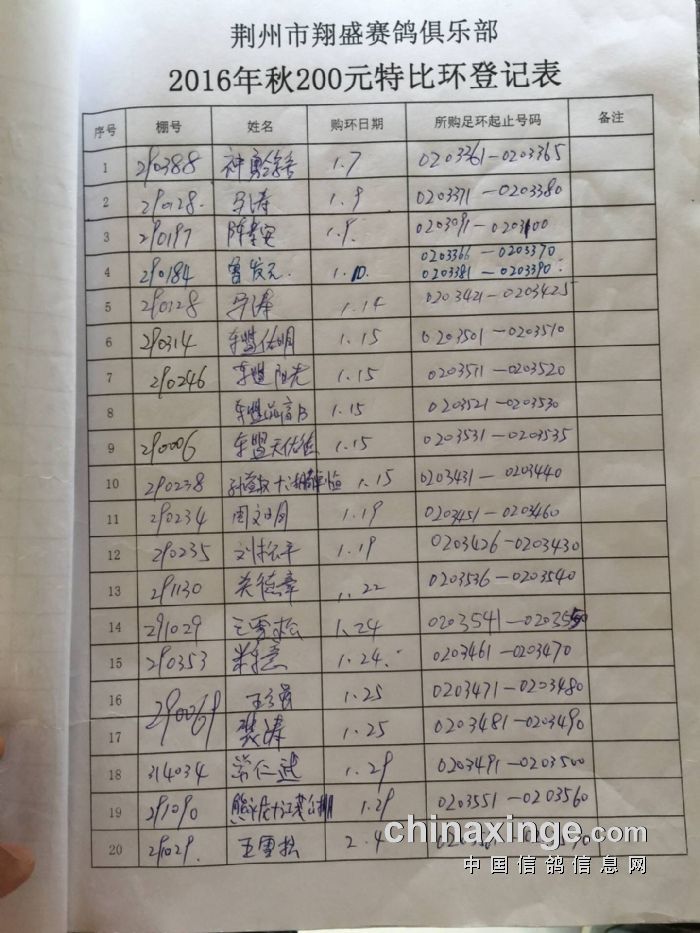 荆州市翔盛赛鸽俱乐部
2016年秋200元特比环登记表
序号 棚号 姓名 购环日期 所购足环起止号码 备注
1 290388 1.7 0203361-0203365
2 290128. 马涛 1.9 0203371-0203380
3 290197 1.9. 0203091-0203100
4 290184 曾发元. 1.10. 0203366-0203370
0203381-0203390.
5 290128 马涛 1.14 0203421-0203425
6 290314 车盟佑明 1.15 0203501-0203510
7 290246 车盟阳光 1.15 0203511-0203520
8 车盟 1.15 0203521-0203530
9 290006 车盟天佑 1.15 0203531-0203535
10 290238 1.15 0203431-0203440
11 290234 周文明 1.19 0203451-0203460
12 290235 刘松平 1.19 0203426-0203430
13 291130 关德章 1.22 0203536-0203540
14 291029 王雪松 1.24 0203541-0203550
15 290353 1.24. 0203461-0203470
16 290069 1.25 0203471-0203480
17 裴涛 1.25 0203481-0203490
18 314034 常仁武 1.29 0203491-0203500
19 291090 1.29 0203551-0203560
20 291029. 王雪松 2.4
chinaxinge.com
中国信鸽信息网